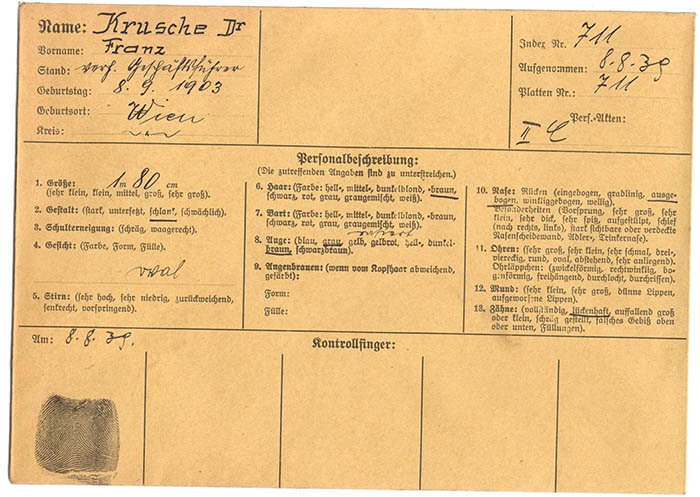 Name: Krusche Dr
Vorname: Franz
Stand: verh. Geschäftsführer
Geburtstag: 8. 9. 1903
Geburtsort: Wien
Kreis: -"-
Index Nr. 711
Aufgenommen: 8.8.39
Platten Nr.: 711
Pers.-Akten:
II C
Personalbeschreibung:
(Die zutreffenden Angaben sind zu unterstreichen.)
1. Größe: 1m 80 cm
(sehr klein, klein, mittel, groß, sehr groß).
2. Gestalt: (stark, untersetzt, schlank, schwächlich).
3. Schulterneigung: (schräg, waagerecht).
4. Gesicht: (Farbe, Form, Fülle).
oval
5. Stirn: (sehr hoch, sehr niedrig, zurückweichend,
senkrecht, vorspringend).
6. Haar: (Farbe: hell-, mittel-, dunkelblond, -braun,
schwarz, rot, grau, graugemischt, weiß).
7. Bart: (Farbe: hell-, mittel-, dunkelblond, -braun,
schwarz, rot, grau, graugemischt, weiß).
rasiert
8. Auge: (blau, grau, gelb, gelbrot, hell-, dunkel-
braun, schwarzbraun).
9. Augenbrauen: (wenn vom Kopfhaar abweichend,
gefärbt):
Form:
Fülle:
10. Nase: Rücken (eingebogen, gradlinig, ausge-
bogen, winkliggebogen, wellig).
Besonderheiten (Vorsprung, sehr groß, sehr
klein, sehr dick, sehr spitz, aufgestülpt, schief
(nach rechts, links), stark sichtbare oder verdeckte
Nasenscheidewand, Adler-, Trinkernase).
11. Ohren: (sehr groß, sehr klein, sehr schmal, drei-,
viereckig, rund, oval, abstehend, sehr anliegend).
Ohrläppchen: (zwickelförmig, rechtwinklig, bo-
genförmig, freihängend, durchlocht, durchrissen).
12. Mund: (sehr klein, sehr groß, dünne Lippen,
aufgeworfene Lippen).
13. Zähne: (vollständig, lückenhaft, auffallend groß
oder klein, schräg gestellt, falsches Gebiß oben
oder unten, Füllungen).
Am: 8. 8. 39.
Kontrollfinger: